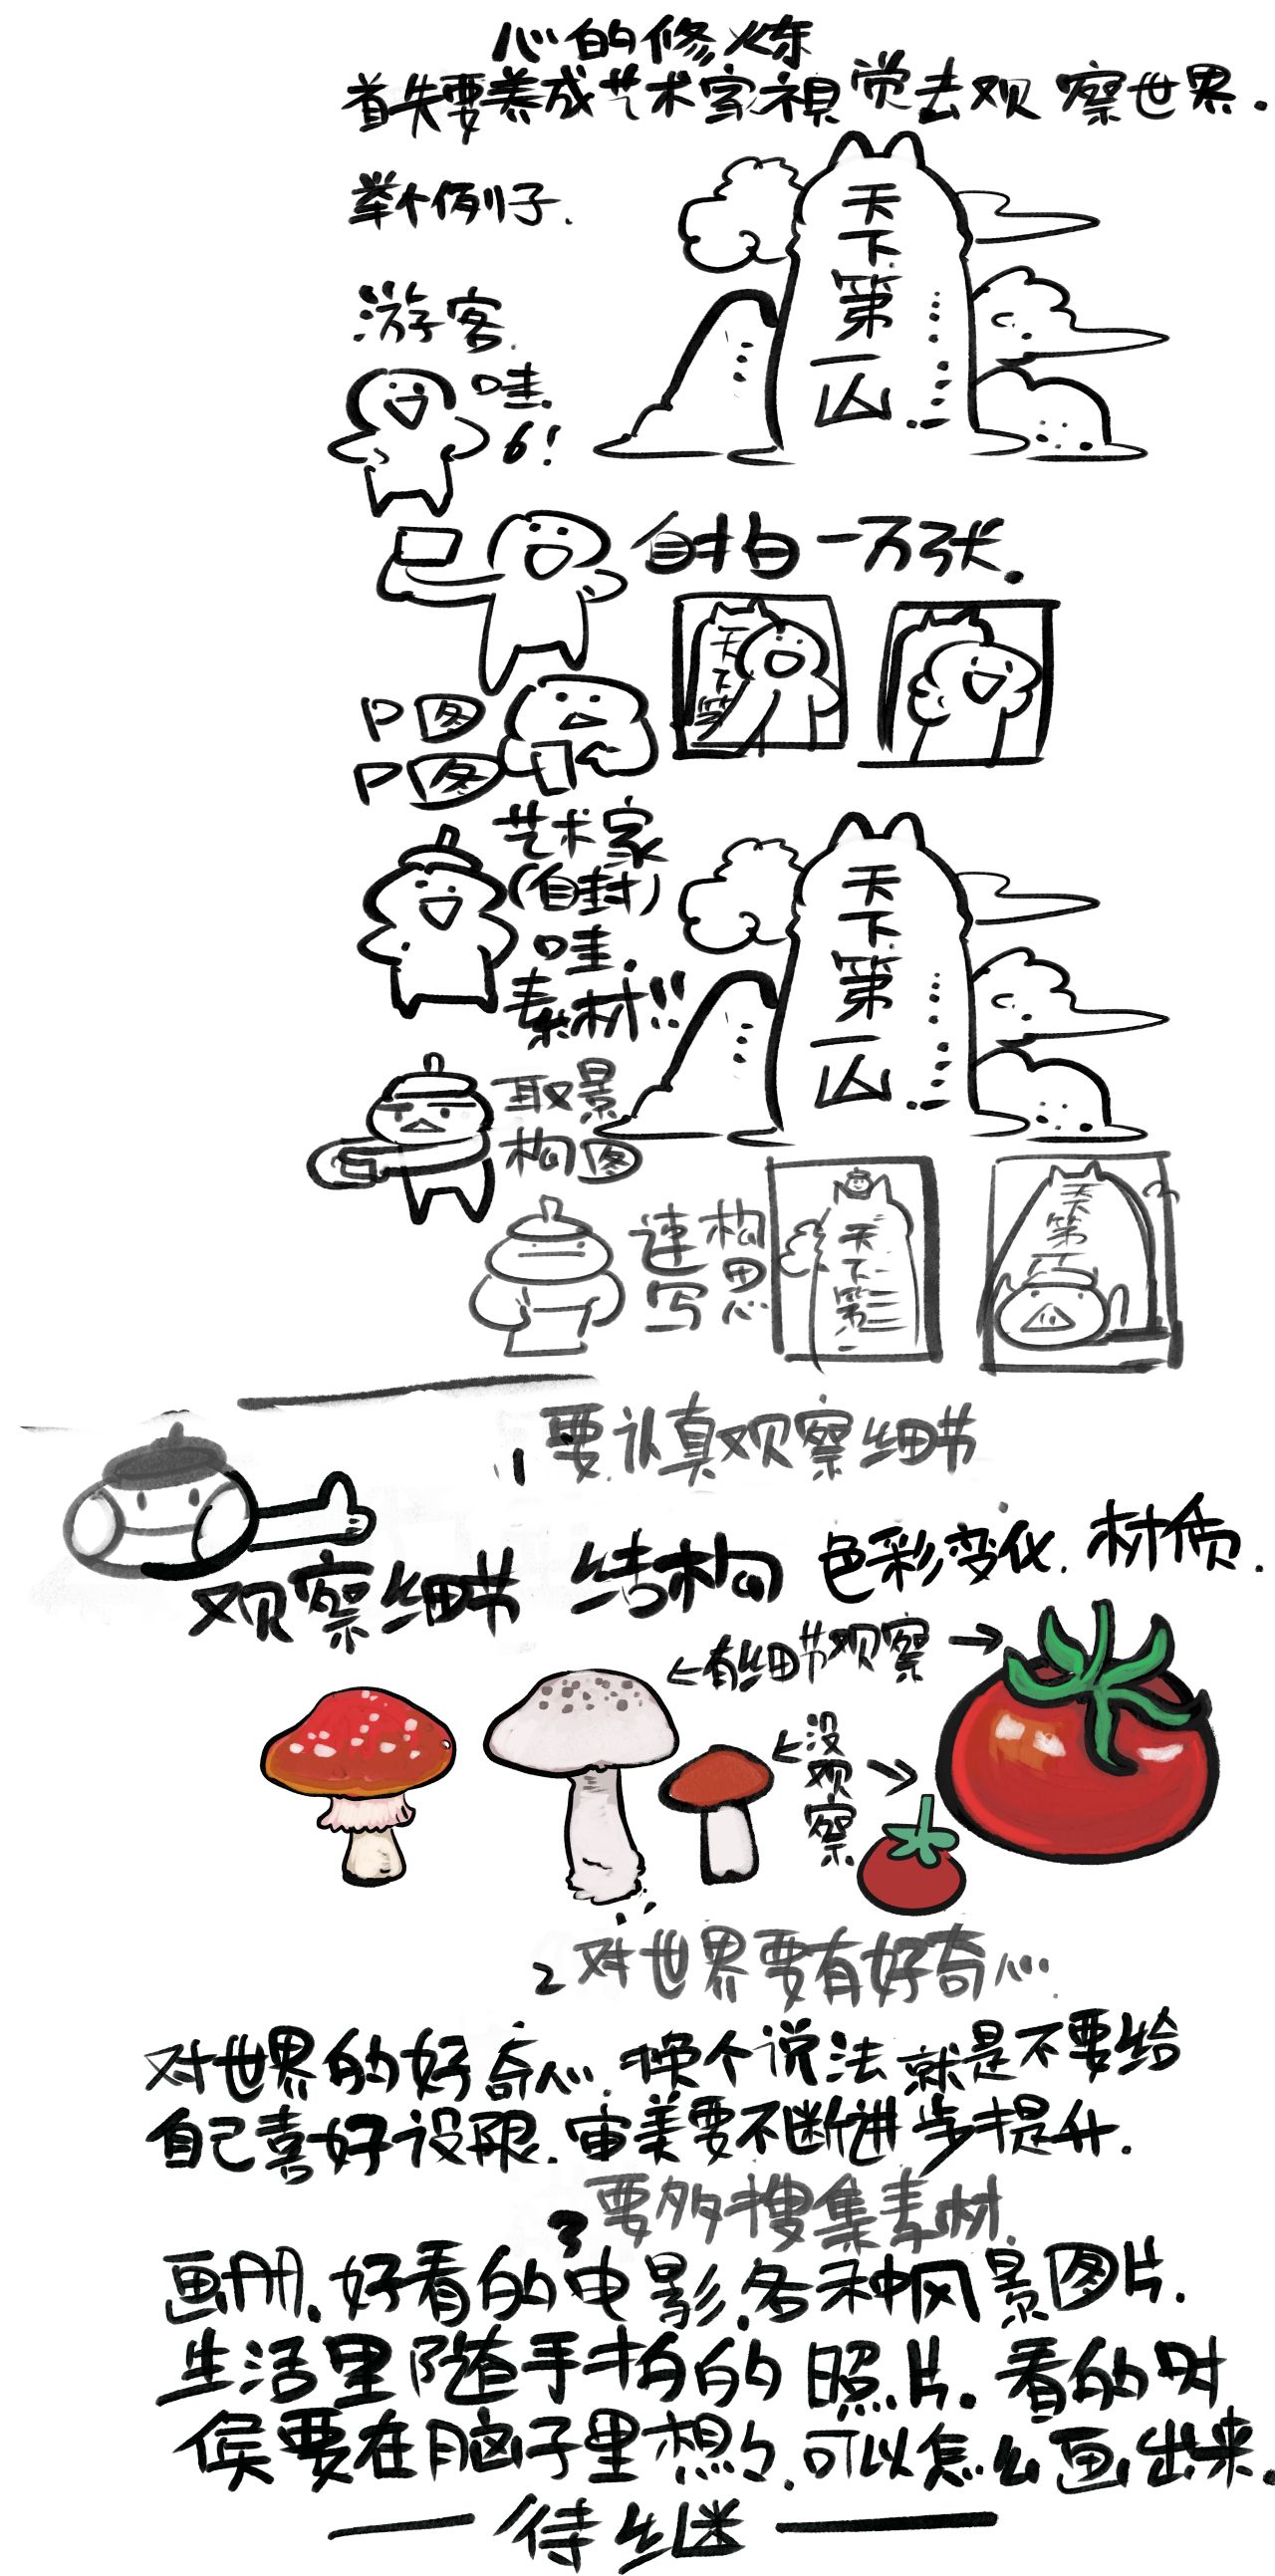 心的修炼
首先要养成艺术家视觉去观察世界.
举个例子.
天下第一山
游客.
哇.
6!
自拍一万张.
天下第
P图
P图
艺术家
(自封)
哇.
素材!!
天下第一山
取景
构图
速写
构思
天下第一
天下第一
1 要认真观察细节
观察细节 结构 色彩变化. 材质.
←有细节观察→
←没观察→
2 对世界要有好奇心.
对世界的好奇心. 换个说法就是不要给
自己喜好设限. 审美要不断进步提升.
3 要多搜集素材.
画册. 好看的电影. 各种风景图片.
生活里随手拍的照片. 看的时
侯要在脑子里想々. 可以怎么画出来.
—— 待继 ——